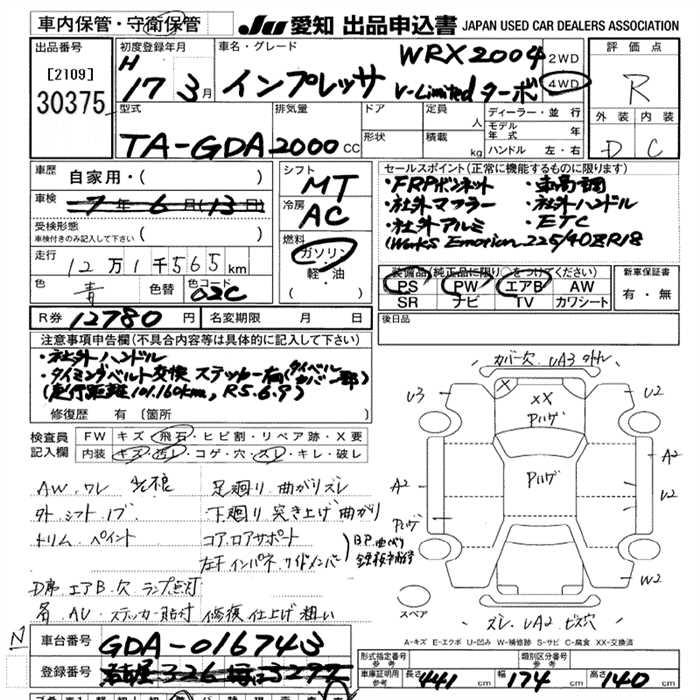 車内保管・守衛保管
JU 愛知 出品申込書 JAPAN USED CAR DEALERS ASSOCIATION
出品番号
[2109]
30375
初度登録年月
H 17年 3月
車名・グレード
WRX2004
インプレッサ V-Limited ターボ
2WD
4WD
評価点
R
外装 内装
D C
型式
TA-GDA
排気量
2000 CC
ドア
形状
定員 人
積載 kg
ディーラー・並行
モデル年式 年
ハンドル 左・右
車歴 自家用・( )
車検 7年6月(13日)
受検形態
車検付きのみ記入して下さい ( )
走行 12万1千565km
色 青
色替
色コード 02C
シフト
MT
冷房
AC
燃料
ガソリン
軽・油
( )
セールスポイント(正常に機能するものに限ります)
・FRPボンネット ・車高調
・社外マフラー ・社外ハンドル
・社外アルミ ・ETC
(Works Emotion 225/40ZR18
装備品(純正品に限り○をつけてください)
PS PW エアB AW
SR ナビ TV カワシート
新車保証書
有・無
R券 12780 円
名変期限 月 日
後日品
注意事項申告欄(不具合内容等は具体的に記入して下さい)
・社外ハンドル
・タイミングベルト交換 ステッカー有(タイベルカバー部)
(走行距離 101,160km, R5.6.9)
修復歴 有 〔箇所
検査員記入欄
FW キズ・飛石・ヒビ割・リペア跡・X要
内装 キズ・汚レ・コゲ・穴・スレ・キレ・破レ
AW ワレ
外シフトノブ
トリム ペイント
足廻り 曲がりズレ
下廻り 突き上げ 曲がり
コアロアサポート
左F インパネ サイドメンバー
エアB 欠 ランプ点灯
ステッカー貼付 修復 仕上げ粗い
カバー欠 UA3
U3
U2
XX
Pハゲ
Pハゲ
A2
A2
Pハゲ
W2
スペア
ズレ UA2
A-キズ E-エクボ U-凹み W-補修跡 S-サビ C-腐食 XX-交換済
N
車台番号 GDA-016743
登録番号 326 3297
形式指定番号
参考
類別区分番号
参考
車庫証明用
参考
長さ 441 cm
幅 174 cm
高さ 140 cm